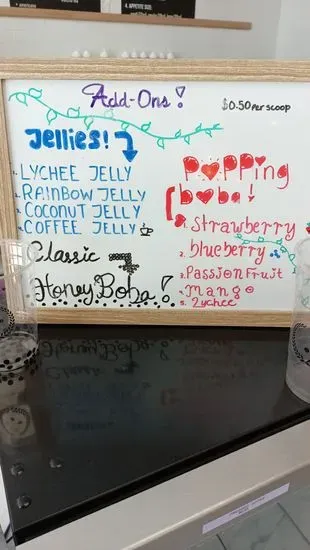 4. APPETITE SIZE
Add-Ons!
$0.50 per scoop
Jellies!
1. LYCHEE JELLY
2. RAINBOW JELLY
3. COCONUT JELLY
4. COFFEE JELLY
Classic
Honey Boba!
Popping
boba!
1. Strawberry
2. blueberry
3. Passion Fruit
4. Mango
5. Lychee